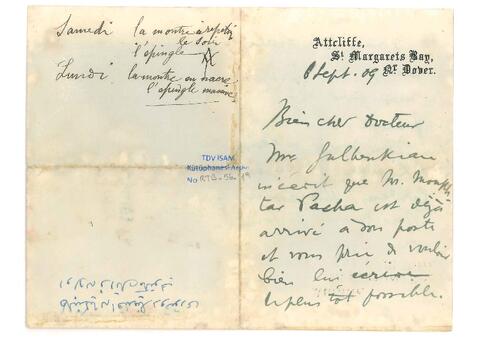 Samedi la montre à répétit
le soir
l'épingle
Lundi la montre en nacre
l'épingle mauve
TDV ISAM
Kütüphanesi Arşivi
No RTB-56
Attcliffe,
St Margarets Bay,
Nr Dover.
8 Sept. 09
Bien cher Docteur
Mr Gulbenkian
m'écrit que M. Moukh
tar Pacha est déjà
arrivé à son poste
et vous prie de vouloir
bien lui écrire
le plus tôt possible.